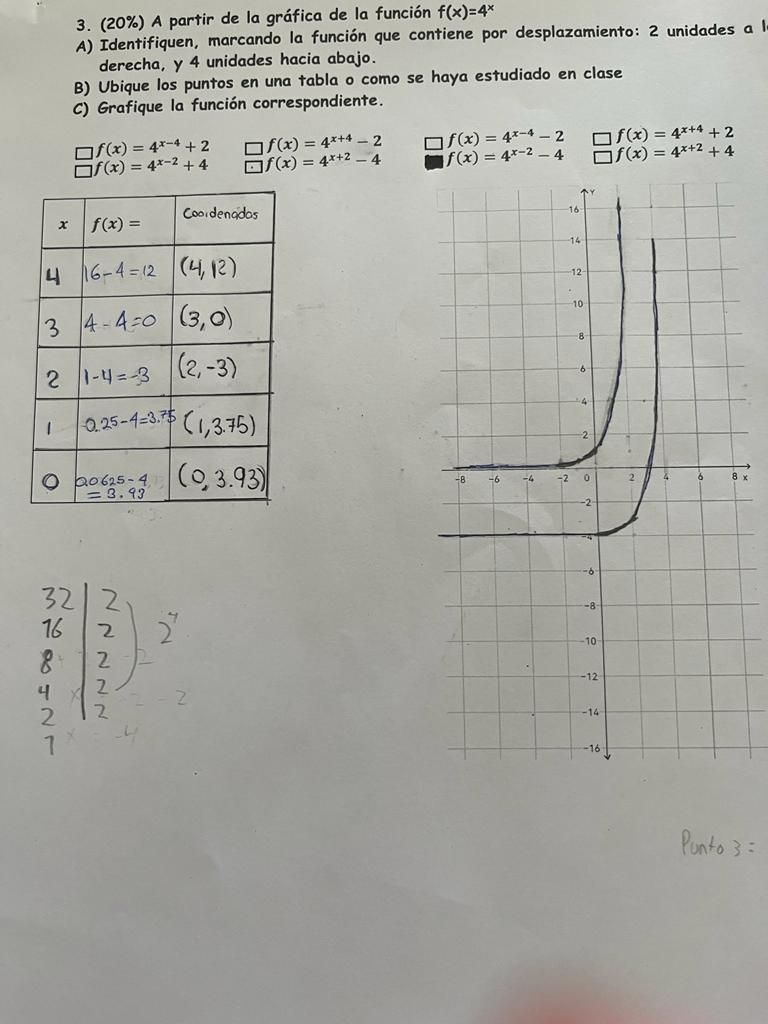 3. (20%) A partir de la gráfica de la función f(x)=4ˣ
A) Identifiquen, marcando la función que contiene por desplazamiento: 2 unidades a l
derecha, y 4 unidades hacia abajo.
B) Ubique los puntos en una tabla o como se haya estudiado en clase
C) Grafique la función correspondiente.
f(x) = 4ˣ⁻⁴ + 2 f(x) = 4ˣ⁺⁴ − 2 f(x) = 4ˣ⁻⁴ − 2 f(x) = 4ˣ⁺⁴ + 2
f(x) = 4ˣ⁻² + 4 f(x) = 4ˣ⁺² − 4 f(x) = 4ˣ⁻² − 4 f(x) = 4ˣ⁺² + 4
x f(x) = Coordenadas
4 16-4=12 (4,12)
3 4-4=0 (3,0)
2 1-4=-3 (2,-3)
1 0.25-4=3.75 (1,3.75)
0 0.0625-4 (0,3.93)
= 3.93
Y
16
14
12
10
8
6
4
2
-8 -6 -4 -2 0 2 4 6 8 x
-2
-4
-6
-8
-10
-12
-14
-16
32 2
16 2 2⁴
8 2
4 2
2 2
1
Punto 3 =